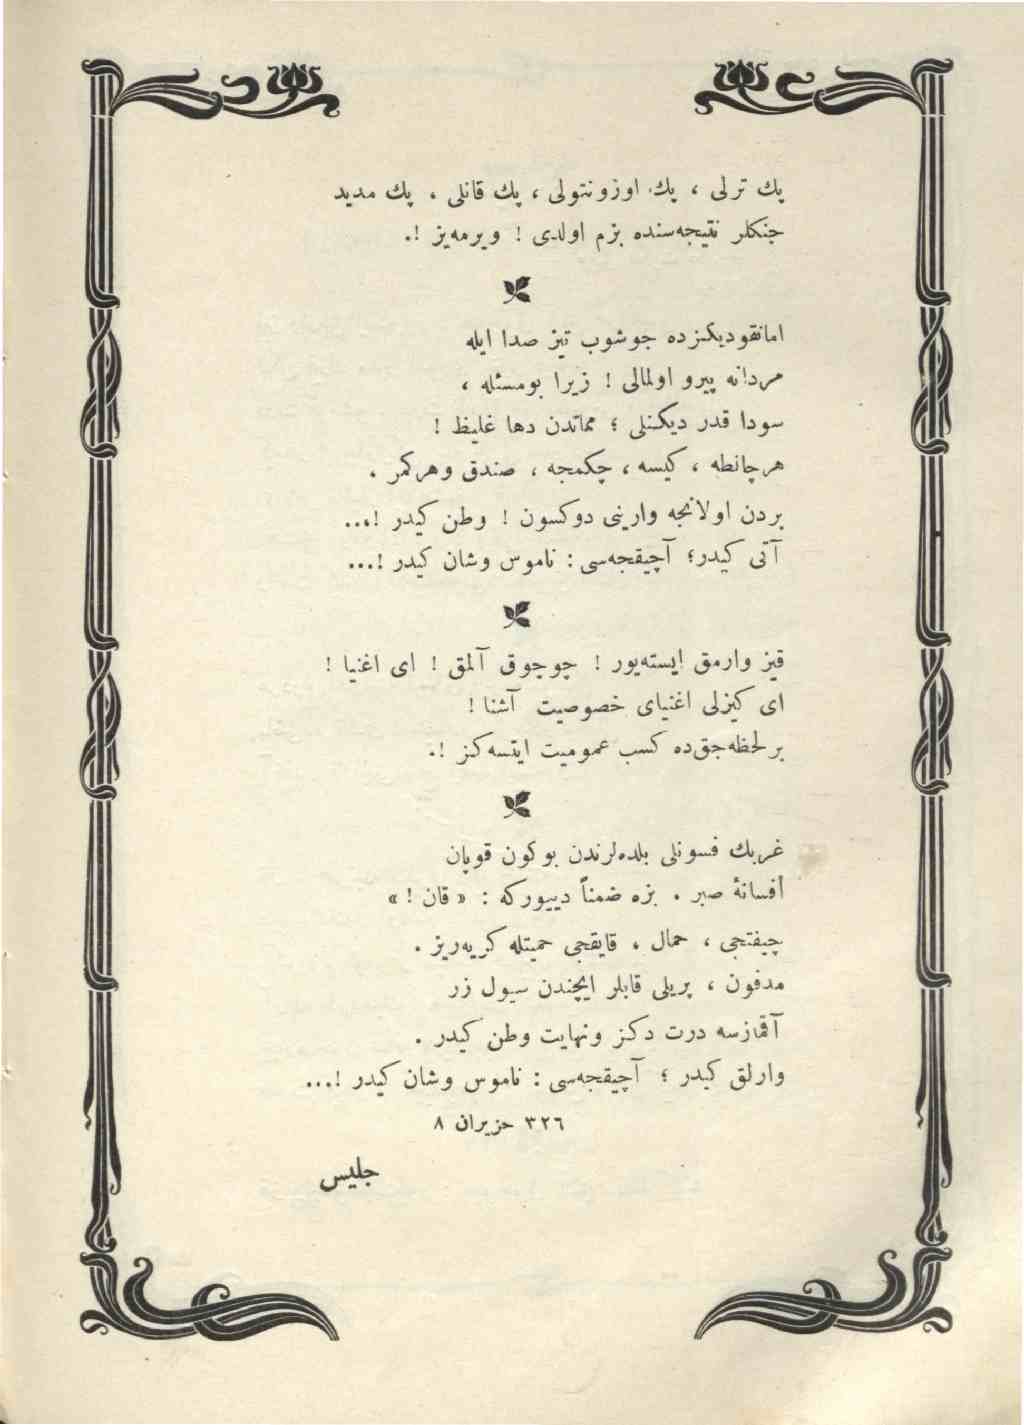 پك ترلی ، پك اوزونتولی ، پك قانلی ، پك مديد
جنكلر نتيجه‌سنده بزم اولدی ! ويرمه‌يز !.
امانقوديكزده جوشوب تيز صدا ايله
مردانه پيرو اولمالی ! زيرا بومسئله ،
سودا قدر ديكنلی ؛ مماتدن دها غليظ !
هرچانطه ، كيسه ، چكمجه ، صندق وهركمر .
بردن اولانجه وارينی دوكسون ! وطن كيدر !...
آتی كيدر؛ آچيقجه‌سی : ناموس وشان كيدر !...
قيز وارمق ايسته‌يور ! چوجوق آلمق ! ای اغنيا !
ای كيزلی اغنيای خصوصيت آشنا !
برلحظه‌جق‌ده كسب عموميت ايتسه‌كز !.
غربك فسونلی بلده‌لرندن بوكون قوپان
افسانهٔ صبر . بزه ضمناً دييوركه : « قان ! »
چيفتجی ، حمال ، قايقجی حميتله كريه‌ريز .
مدفون ، پريلی قابلر ايچندن سيول زر
آقمازسه درت دكز ونهايت وطن كيدر .
وارلق كيدر ؛ آچيقجه‌سی : ناموس وشان كيدر !...
٣٢٦ حزيران ٨
جليس